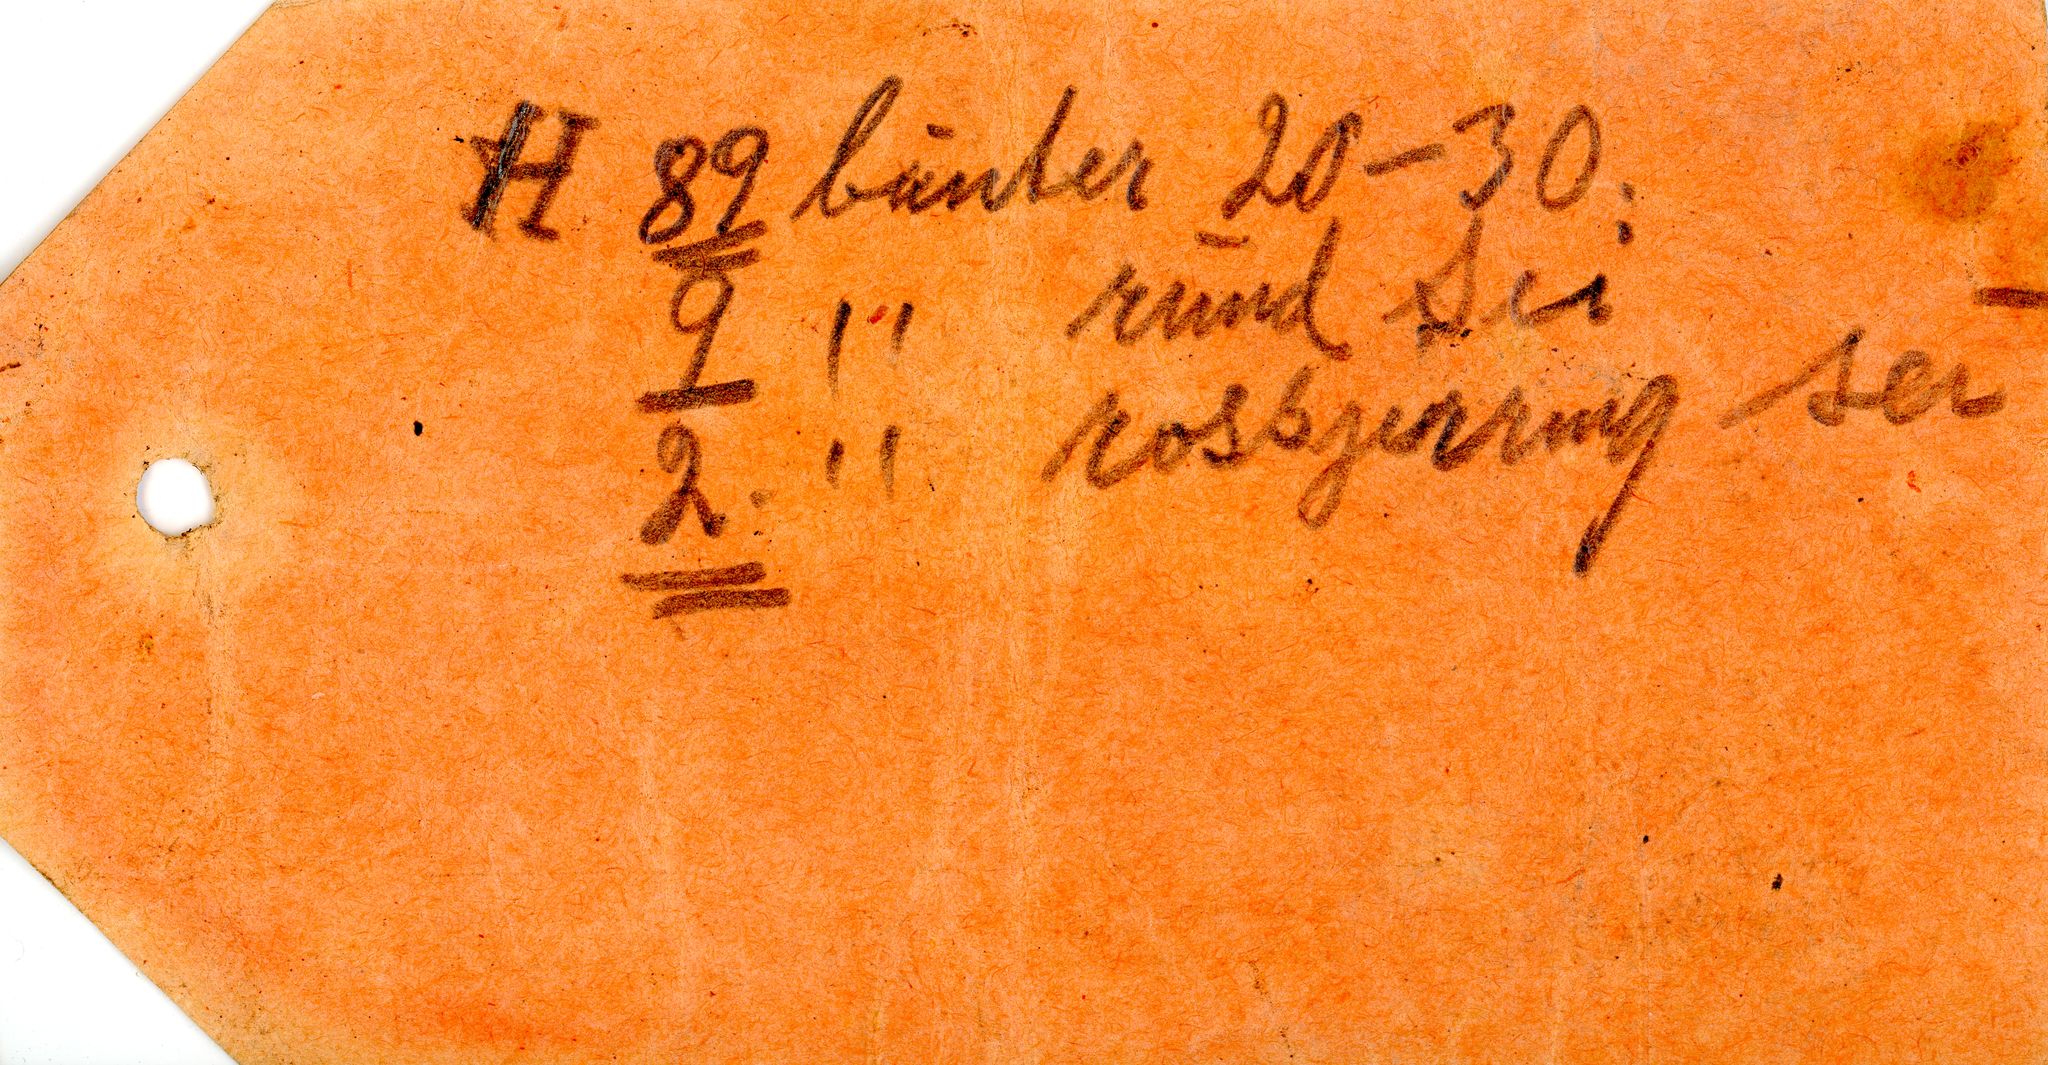 H 89 bunter 20-30.
9 " rund sei
2. " roskjerring sei